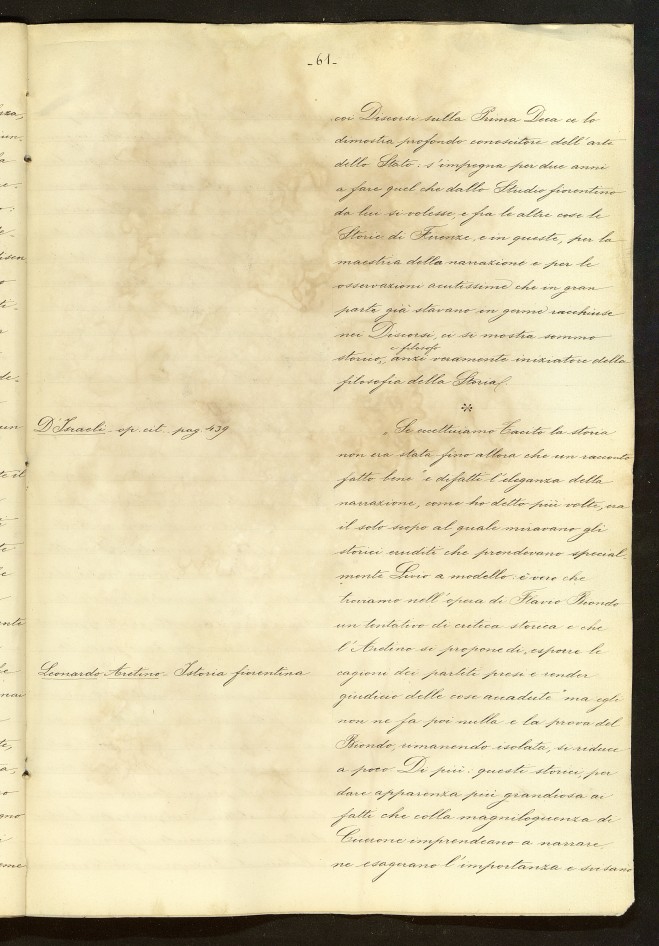 -61-
coi Discorsi sulla Prima Deca ce lo
dimostra profondo conoscitore dell'arte
dello Stato: s'impegna per due anni
a fare quel che dallo Studio fiorentino
da lui si volesse, e fra le altre cose le
Storie di Firenze, e in queste, per la
maestria della narrazione e per le
osservazioni acutissime che in gran
parte già stavano in germe racchiuse
nei Discorsi, ci si mostra sommo
e filosofo
storico, anzi veramente iniziatore della
filosofia della Storia.
*
D'Israeli - op. cit. pag 439
"Se eccettuiamo Tacito la storia
non era stata fino allora che un racconto
fatto bene" e difatti l'eleganza della
narrazione, come ho detto più volte, era
il solo scopo al quale miravano gli
storici eruditi che prendevano special-
mente Livio a modello: è vero che
troviamo nell'opera di Flavio Biondo
un tentativo di critica storica e che
l'Aretino si propone di "esporre le
Leonardo Aretino - Istoria fiorentina
cagioni dei partiti presi e render
giudicio delle cose accadute" ma egli
non ne fa poi nulla e la prova del
Biondo, rimanendo isolata, si riduce
a poco. Di più: questi storici, per
dare apparenza più grandiosa ai
fatti che colla magniloquenza di
Cicerone imprendeano a narrare,
ne esagerano l'importanza e svisano